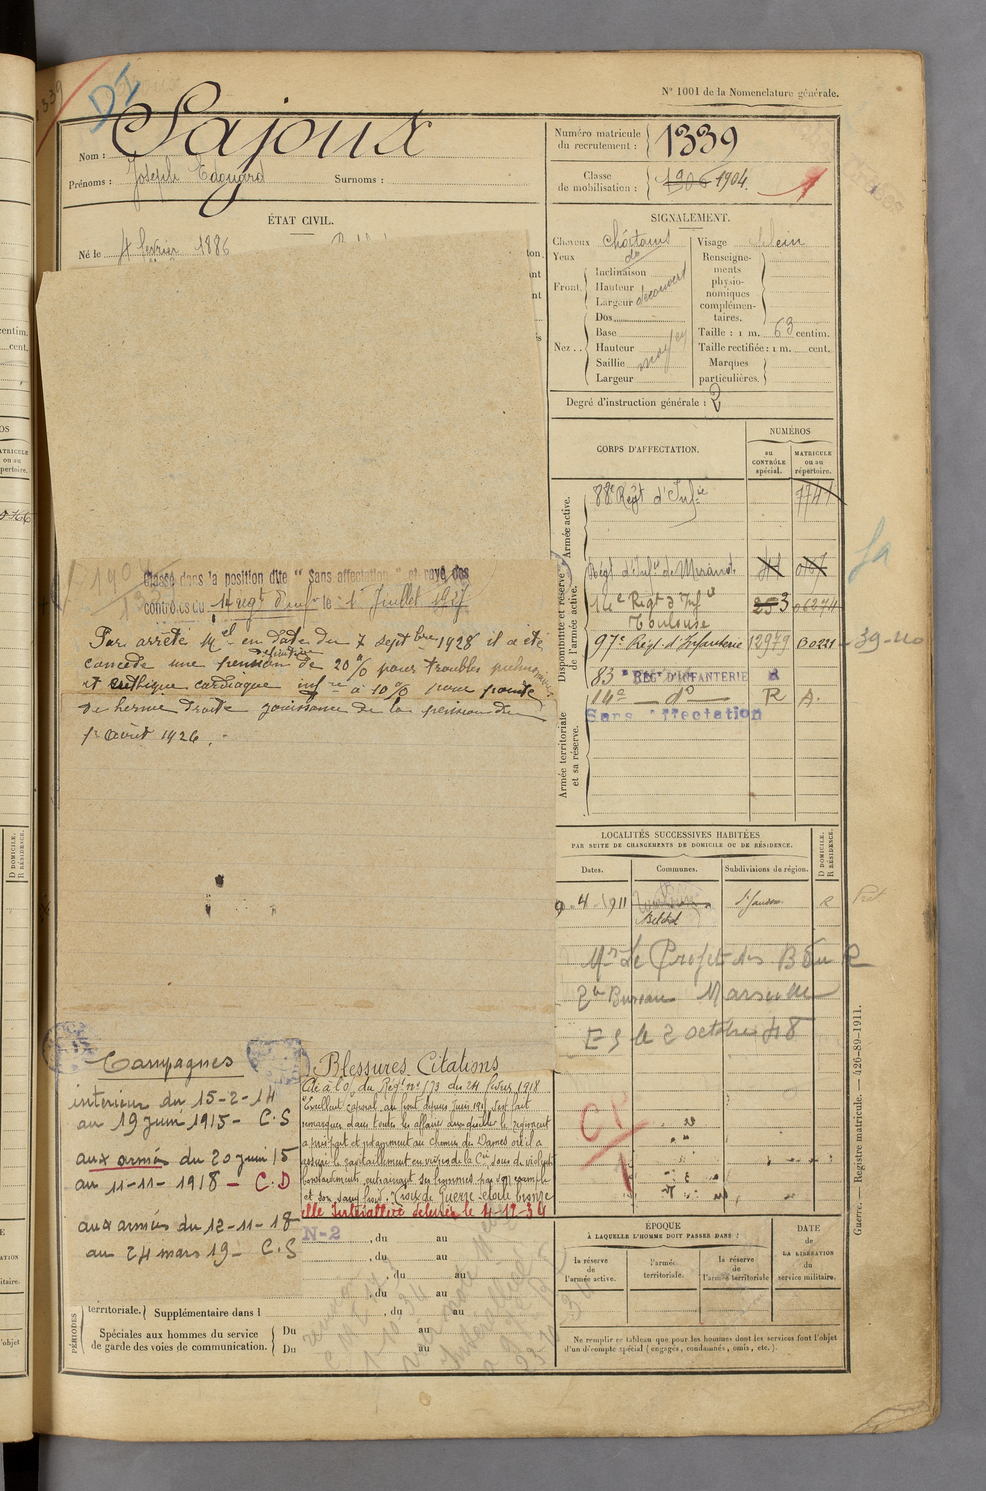 N° 1001 de la Nomenclature générale.
1339
DI
Nom : Sajoux
Prénoms : Joseph Edouard Surnoms :
Numéro matricule du recrutement : 1339
Classe de mobilisation : 1906 1904
ÉTAT CIVIL.
Né le 4 février 1886
SIGNALEMENT.
Cheveux châtains
Yeux do
Front
Inclinaison
Hauteur
Largeur découvert
Nez
Dos
Base
Hauteur moyen
Saillie
Largeur
Visage plein
Renseignements physionomiques complémentaires.
Taille : 1 m. 63 centim.
Taille rectifiée : 1 m. cent.
Marques particulières.
Degré d'instruction générale : 2
CORPS D'AFFECTATION.
NUMÉROS
au CONTRÔLE spécial.
MATRICULE ou au répertoire.
Armée active.
88e Régt d'Infie 7741
Disponibilité et réserve de l'armée active.
Régt d'Infie de Mirande.
14e Régt d'Infie Toulouse 3 06274
97e Rég. d'Infanterie 12979 B0221 39-40
83e REGt D'INFANTERIE
14e do R A.
Sans affectation
Armée territoriale et sa réserve.
Classé dans la position dite "Sans affectation" et rayé des
contrôles du 14 regt d'inf le 1 Juillet 1927
Par arrêté Mel en date du 7 septbre 1928 il a été
concédé une pension définitive de 20% pour troubles
et cardiaque infre à 10% pour pointe
de hernie droite jouissance de la pension du
1r Avril 1926.
LOCALITÉS SUCCESSIVES HABITÉES
PAR SUITE DE CHANGEMENTS DE DOMICILE OU DE RÉSIDENCE.
Dates.
Communes.
Subdivisions de région.
D DOMICILE.
R RÉSIDENCE.
9-4-1911 St Gaudens R
Mr Le Préfet des B du R
2e Bureau Marseille
ES le 2 octobre 48
Campagnes
intérieur du 15-2-14
au 19 juin 1915- C.S
aux armées du 20 juin 15
au 11-11-1918 - C.D
aux armées du 12-11-18
au 24 mars 19- C.S
Blessures, Citations
Cité à l'O/ du Régt n° 173 du 24 février 1918
"Excellent caporal, au front depuis Juin 1915 s'est fait
remarquer dans toutes les affaires auxquelles le régiment
a pris part et notamment au Chemin des Dames où il a
assuré le ravitaillement en vivres de la Cie sous de violents
bombardements, entrainant ses hommes par son exemple
et son sang froid. Croix de Guerre étoile bronze
elle Interalliée délivrée le 4-12-34
N-2
CP
1
, du au
, du au
, du au
, du au
territoriale. Supplémentaire dans l , du au
PÉRIODES
Spéciales aux hommes du service de garde des voies de communication.
Du au
Du au
ÉPOQUE
À LAQUELLE L'HOMME DOIT PASSER DANS :
la réserve de l'armée active.
l'armée territoriale.
la réserve de l'armée territoriale
DATE de LA LIBÉRATION du service militaire.
Ne remplir ce tableau que pour les hommes dont les services font l'objet
d'un décompte spécial (engagés, condamnés, omis, etc.).
Guerre. — Registre matricule. — 426-89-1911.